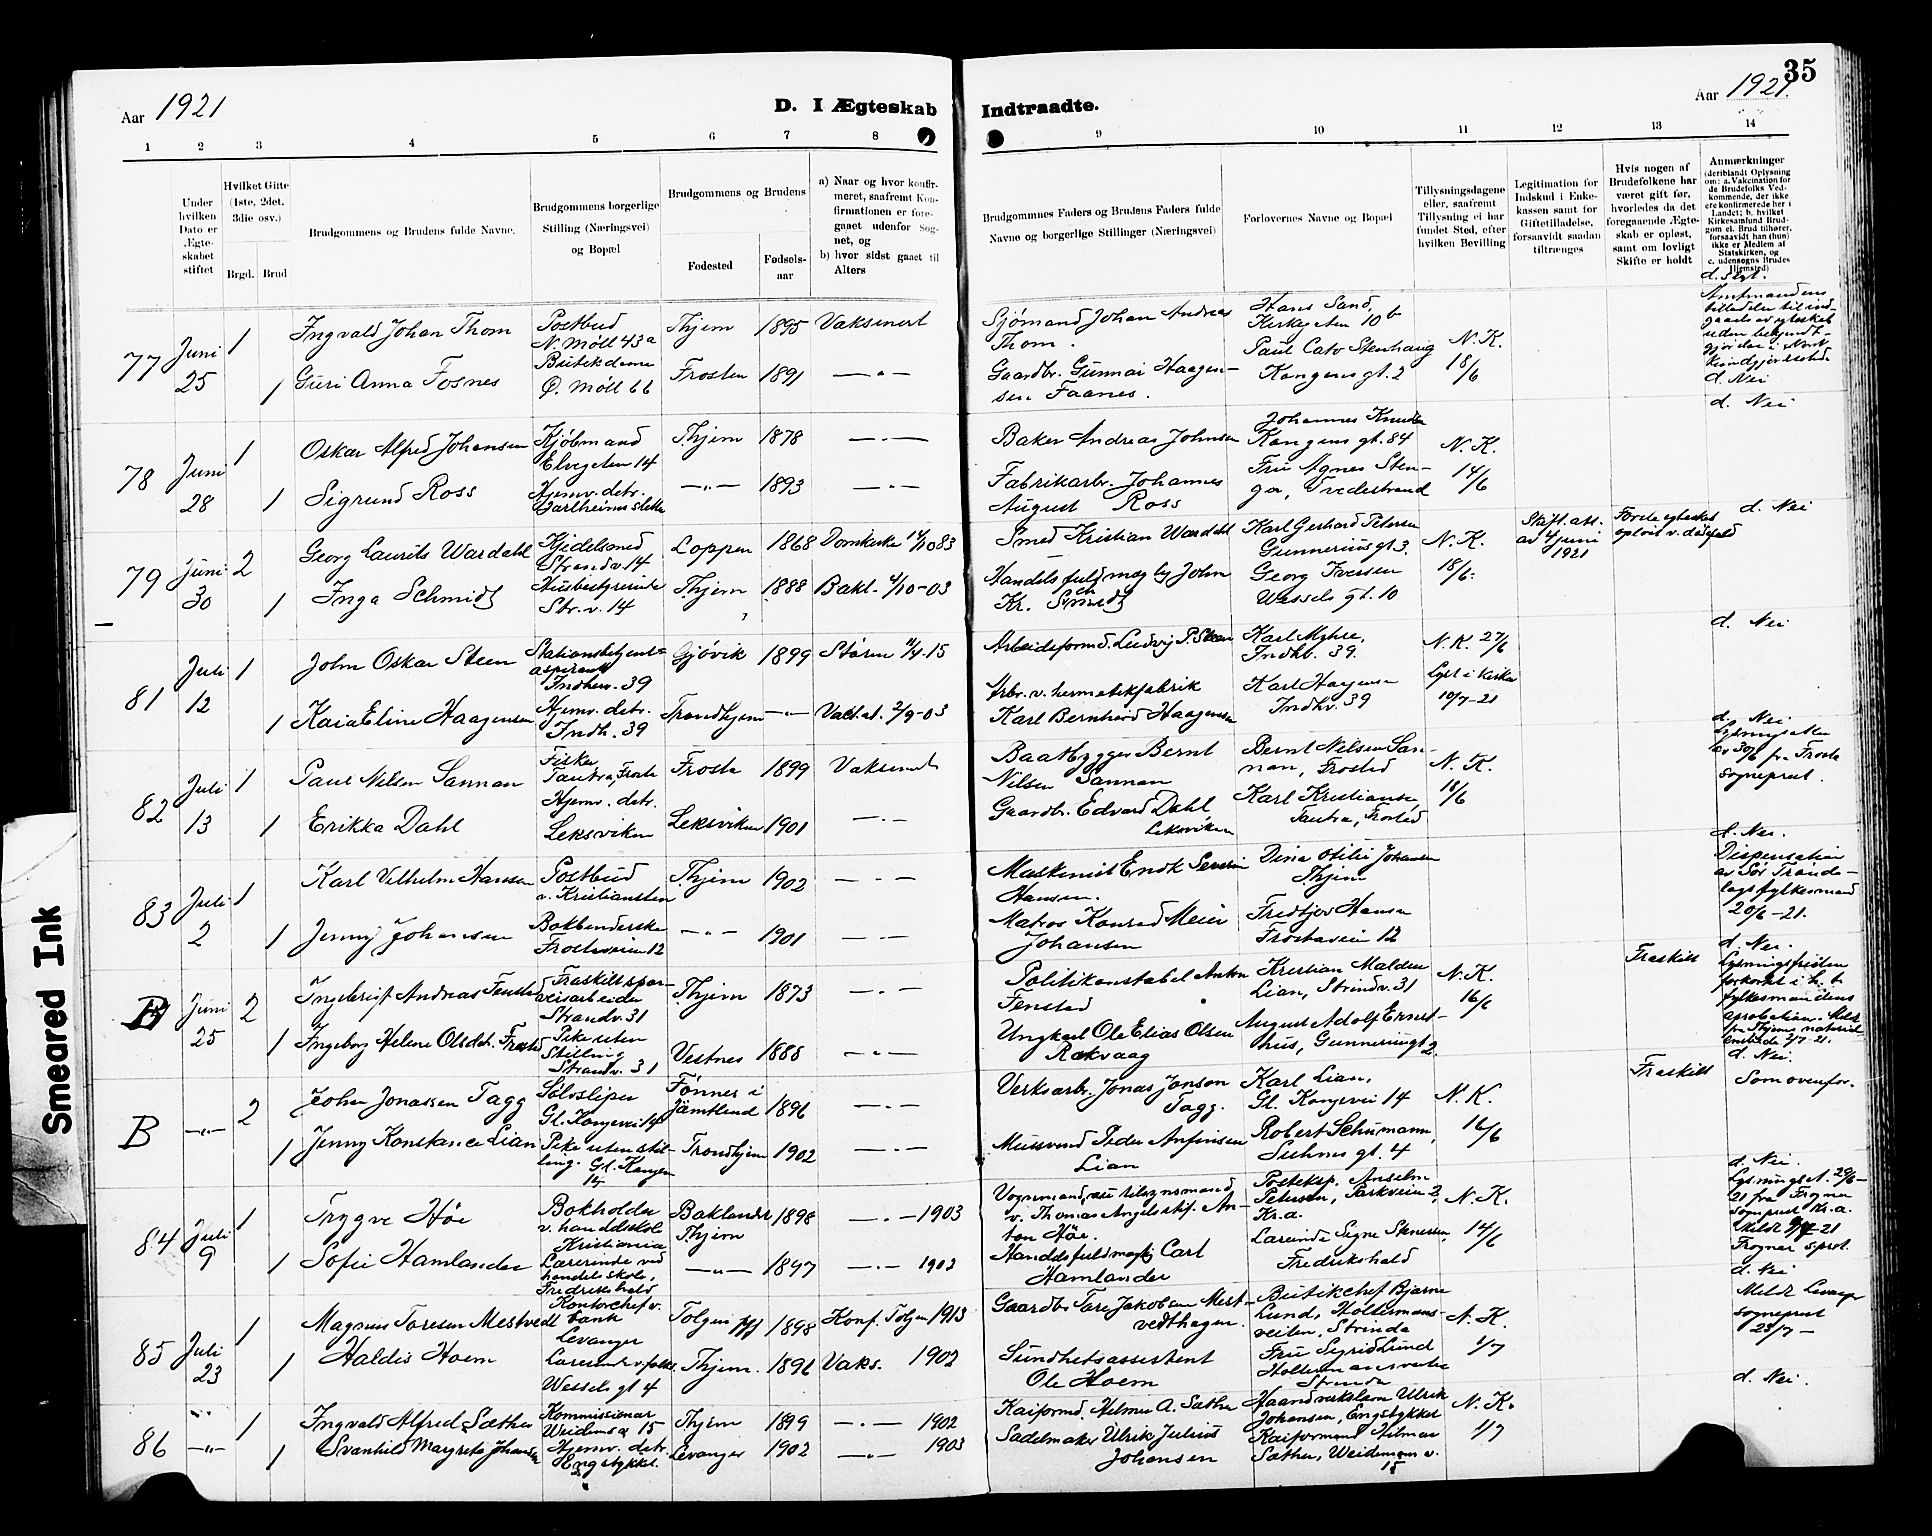 35
Aar 1921
D. I Ægteskab Indtraadte.
Aar 1921.
1 2 3 4 5 6 7 8 9 10 11 12 13 14
Under hvilken Dato er Ægteskabet stiftet
Hvilket Gifte (1ste, 2det, 3die osv.)
Brgd. Brud
Brudgommens og Brudens fulde Navne.
Brudgommens borgerlige Stilling (Næringsvei) og Bopæl
Brudgommens og Brudens
Fødested
Fødsels-aar
a) Naar og hvor konfirmeret, saafremt Konfirmationen er foregaaet udenfor Sognet, og
b) hvor sidst gaaet til Alters
Brudgommens Faders og Brudens Faders fulde Navne og borgerlige Stillinger (Næringsvei)
Forlovernes Navne og Bopæl
Tillysningsdagene eller, saafremt Tillysning ei har fundet Sted, efter hvilken Bevilling
Legitimation for Indskud i Enkekassen samt for Giftetilladelse, forsaavidt saadan tiltrænges
Hvis nogen af Brudefolkene har været gift før, hvorledes da det foregaaende Ægteskab er opløst, samt om lovligt Skifte er holdt
Anmærkninger (deriblandt Oplysning om: a. Vakcination for de Brudefolks Vedkommende, der ikke ere konfirmerede her i Landet; b. hvilket Kirkesamfund Brudgom el. Brud tilhører, forsaavidt han (hun) ikke er Medlem af Statskirken, og c. udensogns Brudes Hjemsted)
77 Juni 25 1 Ingvald Johan Thom Postbud N. Möll 43a Thjem 1895 Vaksinert Sjömand Johan Andreas Thom. Hans Sand, Kirkegaten 10 b N. K. 18/6
1 Guri Anna Fosnes Ö. Möll 66 Frosten 1891 —"— Gaardbr. Gunnar Haagensen Faanes. Paul Cato Stenhaug Kongens gt. 2
d. Nei
78 Juni 28 1 Oskar Alfred Johansen Kjöbmand Elvegaten 14 Thjem 1878 —"— Baker Andreas Johnsen Johannes Knudsen Kongens gt. 84 N. K. 14/6
d. Nei
1 Sigrund Ross Hjemv. dtr. —"— 1893 —"— Fabrikarbr. Johannes August Ross Fru Agnes Stenger, Tvedestrand
79 Juni 30 2 Georg Laurits Wardahl Kjedelsmed Strandv. 14 Loppen 1868 Domkirke 1/10 83 Smed Kristian Wardahl Karl Gerhard Petersen Gunnerius gt 3. N. K. 18/6. Stift. att. av 4 juni 1921 Förste egteskab oplöst v. dödsfald
d. Nei
1 Inga Schmidt Husbestyrerinde Str. v. 14 Thjem 1888 Bakl. 4/10-03 Handelsfuldmægtig John Kr. Schmidt Georg Iversen Wessels gt. 10
81 Juli 12 1 John Oskar Steen Stationsbetjent-aspirant Indherv. 39 Gjövik 1899 Stören 11/4-15 Arbeidsformd. Ludvig P. Steen Karl Myhre, Indhv. 39. N. K. 27/6 Lyst i kirke 10/7-21
d. Nei
1 Kaia Eline Haagensen Hjemv. dtr. Indh. 39 Trondhjem —"— Arbr. v. hermetikfabrik Karl Bernhard Haagensen Karl Haagensen Indhv. 39
82 Juli 13 1 Paul Nilsen Sannan Fisker Tautra, Frosta Frosta 1899 Vaksinert Baatbygger Bernt Nilsen Sannan Bernt Nilsen Sannan, Frosted N. K. 18/6
d. Nei Lysningsattest av 30/6 fra Frosta sogneprest.
1 Erikka Dahl Hjemv. dtr. Leksviken Leksviken 1901 —"— Gaardbr. Edvard Dahl, Leksviken Karl Kristiansen, Tautra, Frosted
83 Juli 2 1 Karl Vilhelm Hansen Postbud v. Kristiansten Thjem 1902 —"— Maskinist Enok Severin Hansen. Dina Otilie Johansen Thjem
d. Nei. Dispensation av Sör Trondelags fylkesmand 20/6-21.
1 Jenny Johansen Bokbinderske Frostaveien 12 —"— 1901 —"— Matros Konrad Meier Johansen Fredtjov Hansen Frostaveien 12
B Juni 25 2 Ingebrigt Andreas Fenstad Fraskilt sporveisarbeider Strandv. 31 Thjem 1873 —"— Politikonstabel Anton Fenstad Kristian Malden Lian, Strindv. 31 N. K. 16/6 Fraskilt
d. Nei. Lysningsfristen forkortet i h. t. fylkesmandens aprobation.
1 Ingeborg Helene Olsdtr. Pike uten Stilling Strandv. 31 Vestnes 1888 —"— Ungkarl Ole Elias Olsen Rakvaag August Adolf Ernsthus, Gunnerusgt 2.
B —"— 2 Johan Jonassen Tagg Sölvsliper Gl. Kongevei 14 Fönnes i Jämtland 1896 —"— Verksarbr. Jonas Jonson Tagg. Karl Lian, Gl. Kongevei 14 N. K. 16/6 Fraskilt
d. Nei. Som ovenfor.
1 Jenny Konstance Lian Pike uten stilling. Gl. Kongev 14 Trondhjem 1902 —"— Mursvend Peder Anfinsen Lian Robert Schumann, Suhms gt. 4
84 Juli 9 1 Trygve Höe Bokholder v. handelskol. Kristiania Baklandet Thjem 1898 —"— 1903 Vognmand, tilsynsmand v. Thomas Angels stif. Anton Höe. Posteksp. Anselm Petersen, Parkveien 2, Kr.a. N. K. 14/6
d. Nei. Lysningsat. 29/6-21 fra Frogner sogneprest Kr.a.
1 Sofie Hamlander Lærerinde ved handelskole, Fredrikshald —"— 1897 —"— 1903 Handelsfuldmægtig Carl Hamlander Lærerinde Signe Stenersen, Fredrikshald
85 Juli 23 1 Magnus Toresen Mestvedt Kontorchef v. bank Levanger Tolgen 1898 Konf. Tolgen 1913 Gaardbr. Tore Jakobsen Mestvedthagen. Butikchef Bjarne Lund, Holtermansveiten, Strinda N. K. 1/7
d. Nei Meldt Levanger sogneprest 23/7 —
1 Haldis Hoem Wessels gt 4 Thjem. 1896 Vaks. 1902 Sundhetsassistent Ole Hoem Fru Sigrid Lund Holtermansveiten Strinda
86 —"— 1 Ingvald Alfred Sæther Kommissionær Weidems v. 15 Thjem 1899 —"— 1902 Kaiformd. Hilmar A. Sæther Haandverkslærer Ulrik Johansen, Engstykket N. K. 1/7
d. Nei.
1 Svanhild Margrete Johansen Hjemv. dtr. Engstykket. Levanger 1902 —"— 1903 Sadelmaker Ulrik Julius Johansen Kaiformand Hilmar Sæther, Weidemans v. 15
Smeared Ink